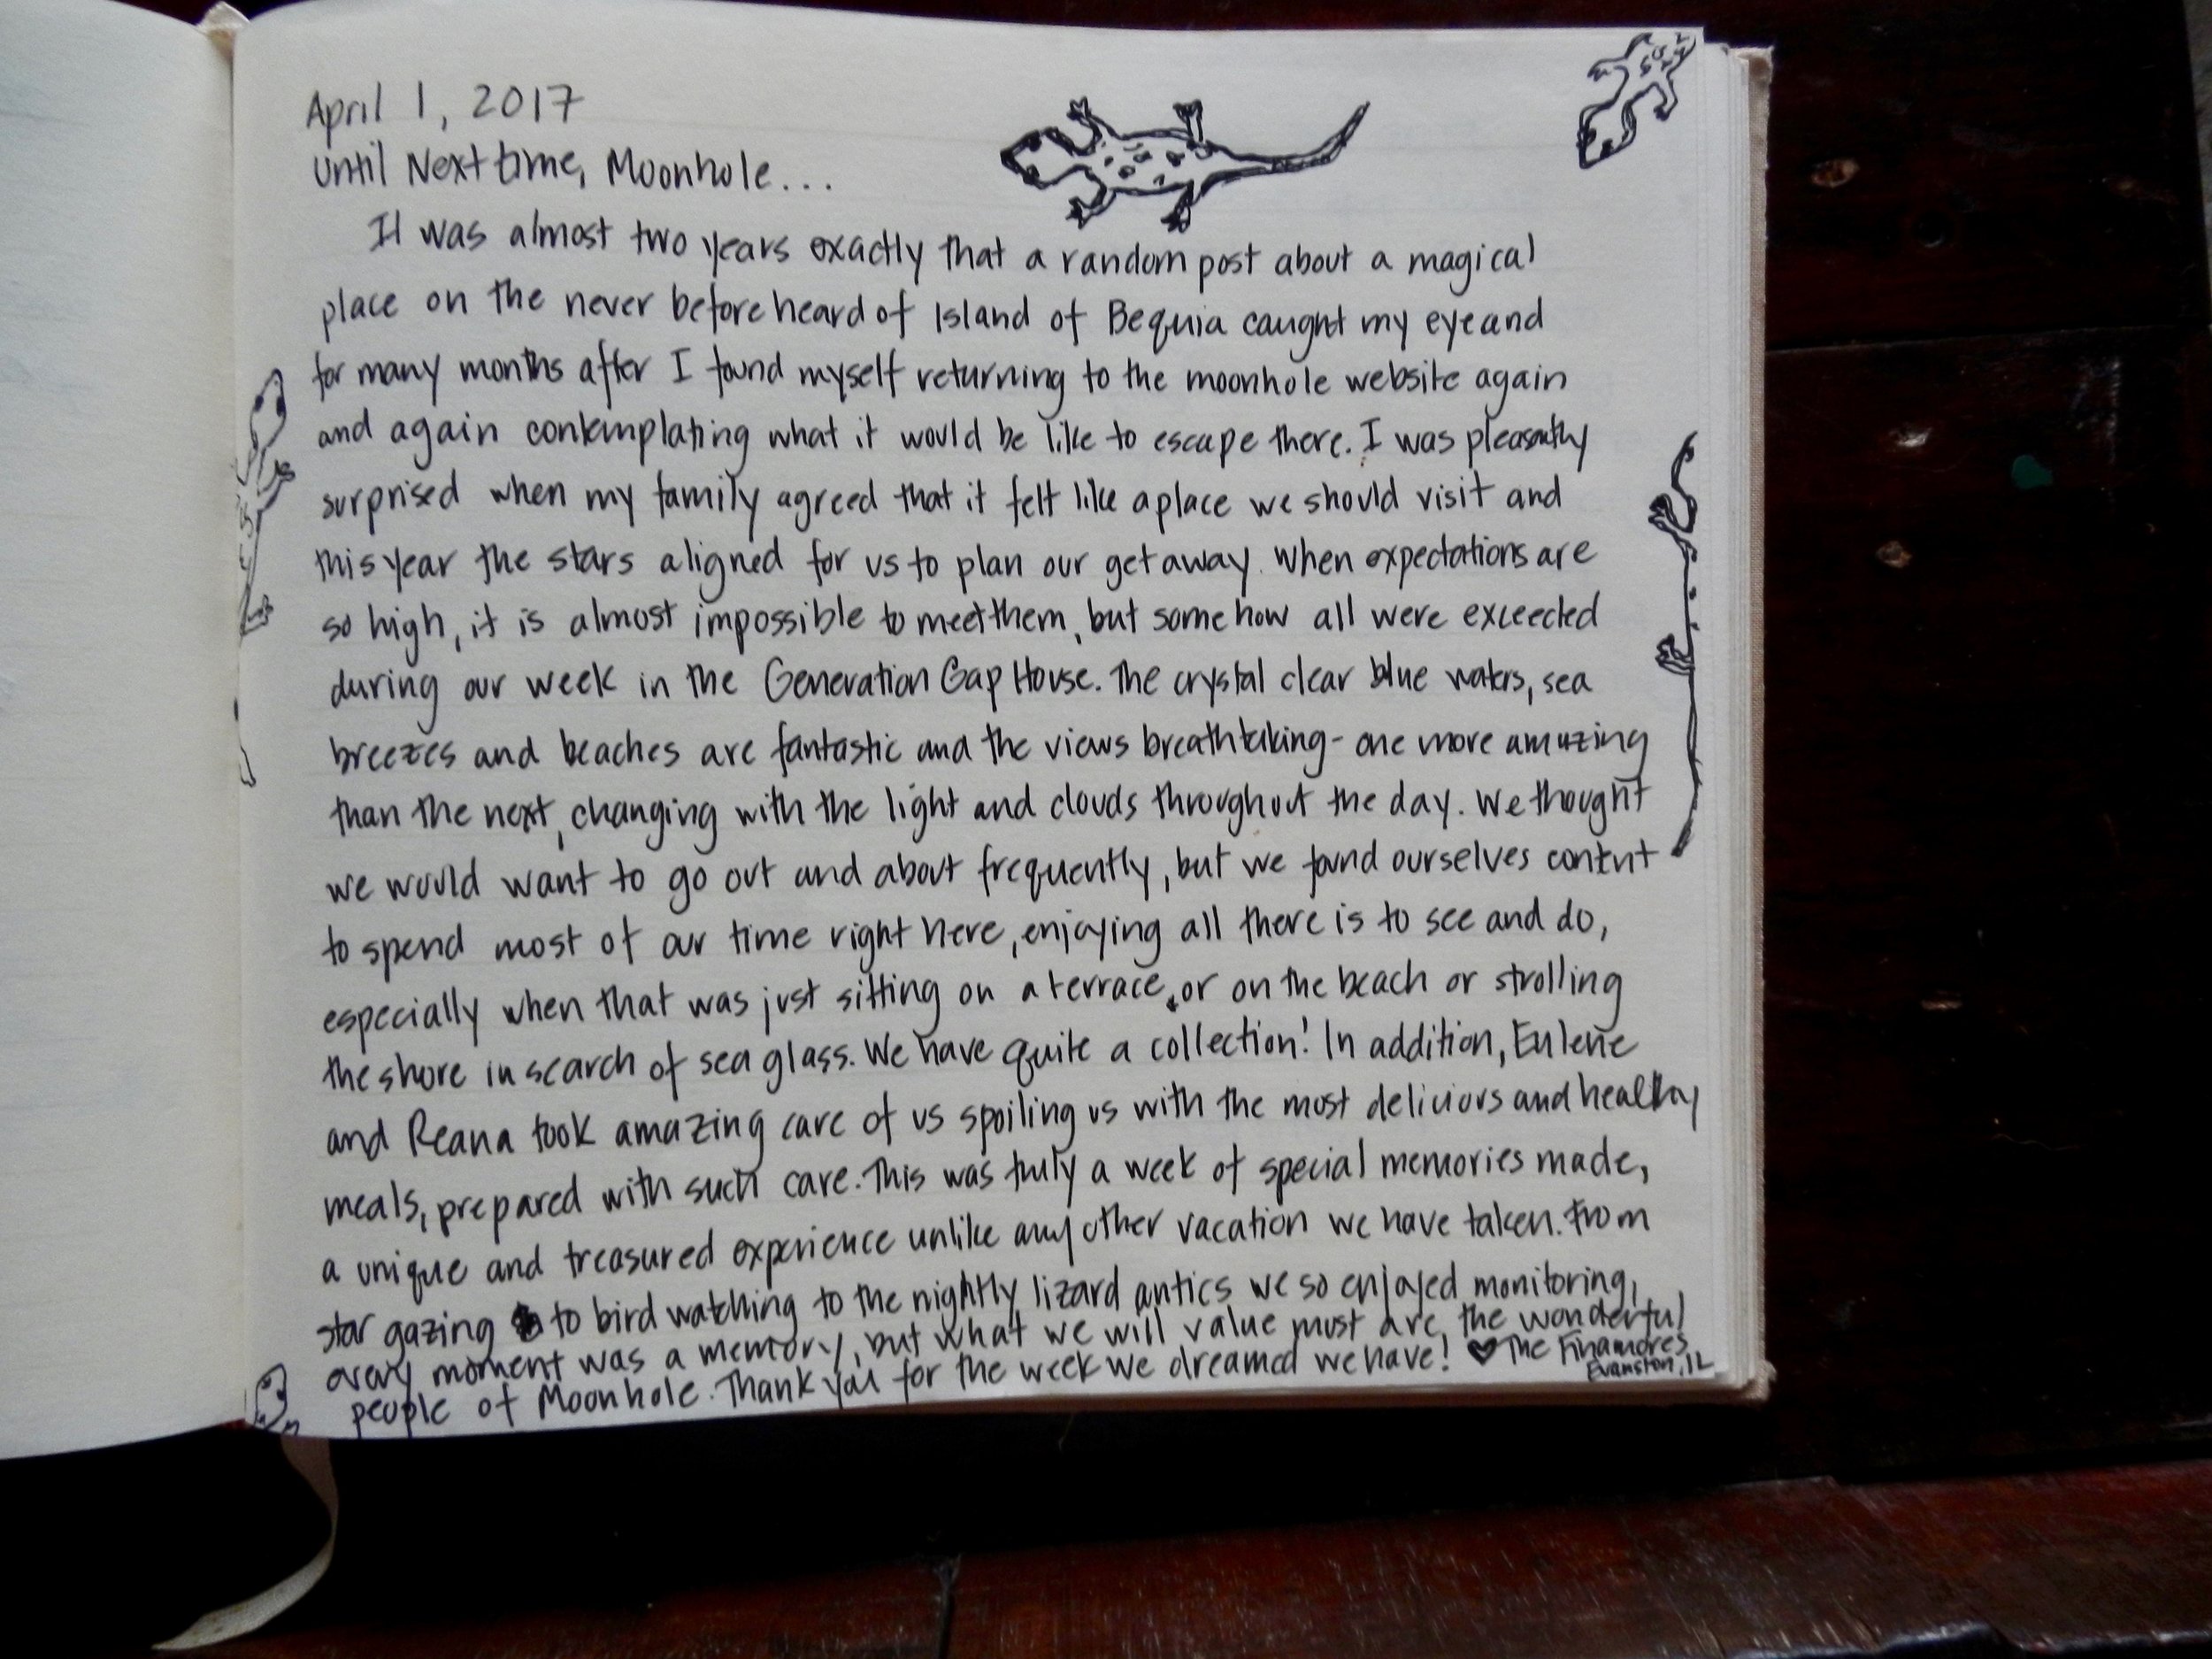 April 1, 2017
Until Next time, Moonhole...
It was almost two years exactly that a random post about a magical
place on the never before heard of Island of Bequia caught my eye and
for many months after I found myself returning to the moonhole website again
and again contemplating what it would be like to escape there. I was pleasantly
surprised when my family agreed that it felt like a place we should visit and
this year the stars aligned for us to plan our get away. When expectations are
so high, it is almost impossible to meet them, but somehow all were exceeded
during our week in the Generation Gap House. The crystal clear blue waters, sea
breezes and beaches are fantastic and the views breathtaking - one more amazing
than the next, changing with the light and clouds throughout the day. We thought
we would want to go out and about frequently, but we found ourselves content
to spend most of our time right here, enjoying all there is to see and do,
especially when that was just sitting on a terrace, or on the beach or strolling
the shore in search of sea glass. We have quite a collection! In addition, Eulene
and Reana took amazing care of us spoiling us with the most delicious and healthy
meals, prepared with such care. This was truly a week of special memories made,
a unique and treasured experience unlike any other vacation we have taken. From
star gazing to bird watching to the nightly lizard antics we so enjoyed monitoring,
every moment was a memory, but what we will value most are the wonderful
people of Moonhole. Thank you for the week we dreamed we have! ♥ The Finamores
Evanston, IL